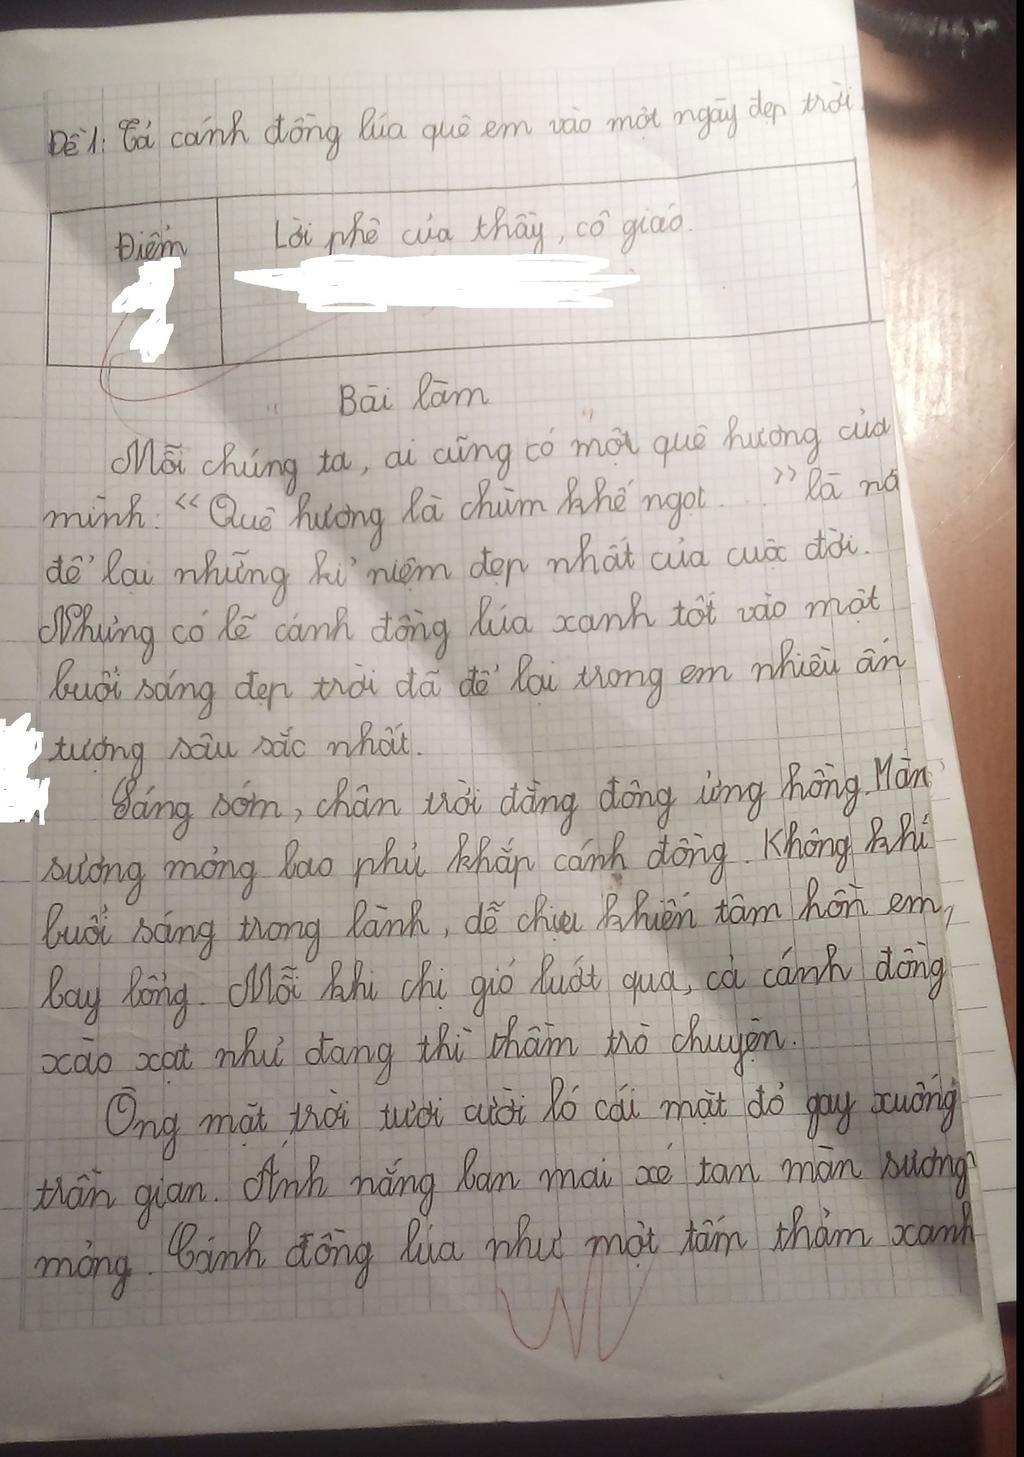 Đề 1: Tả cánh đồng lúa quê em vào một ngày đẹp trời.
Điểm
Lời phê của thầy, cô giáo.
Bài làm
Mỗi chúng ta, ai cũng có một quê hương của
mình: "Quê hương là chùm khế ngọt...." là nơi
để lại những kỉ niệm đẹp nhất của cuộc đời.
Nhưng có lẽ cánh đồng lúa xanh tốt vào một
buổi sáng đẹp trời đã để lại trong em nhiều ấn
tượng sâu sắc nhất.
Sáng sớm, chân trời đằng đông ửng hồng. Màn
sương mỏng bao phủ khắp cánh đồng. Không khí
buổi sáng trong lành, dễ chịu khiến tâm hồn em
bay bổng. Mỗi khi chị gió lướt qua, cả cánh đồng
xào xạt như đang thì thầm trò chuyện.
Ông mặt trời tươi cười ló cái mặt đỏ gay xuống
trần gian. Ánh nắng ban mai xé tan màn sương
mỏng. Cánh đồng lúa như một tấm thảm xanh